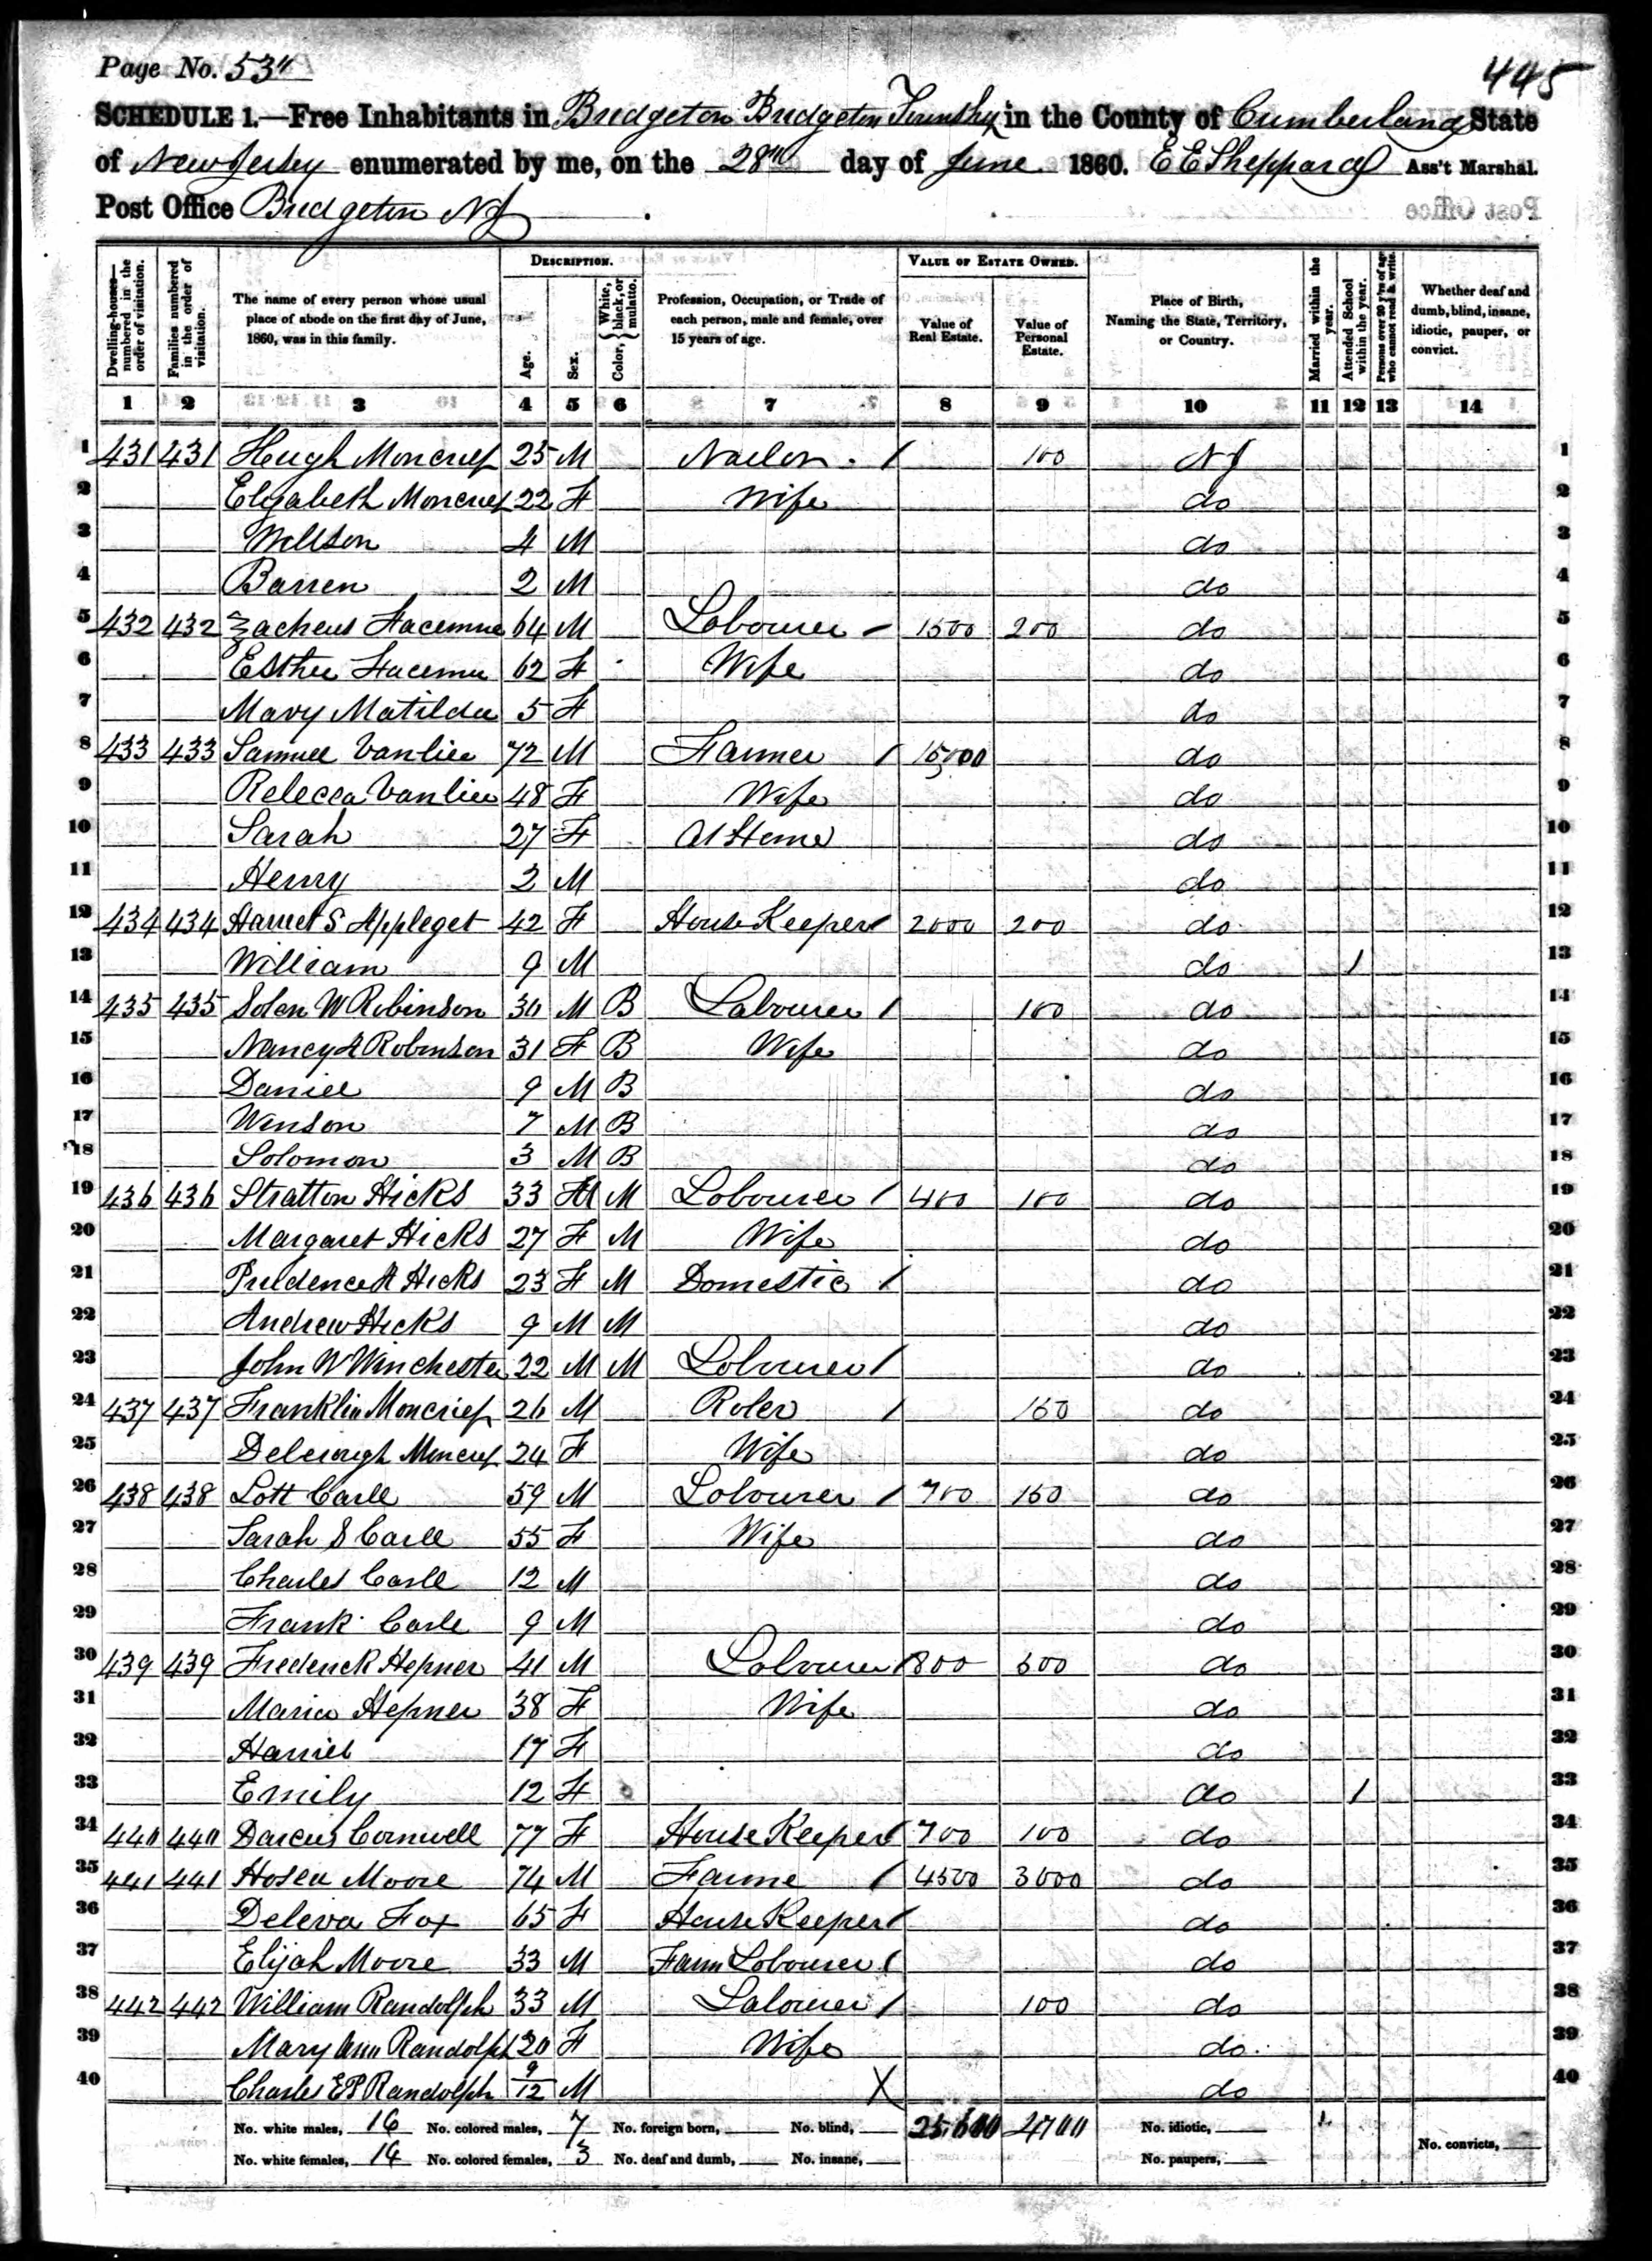 Page No. 53"
445
SCHEDULE 1.—Free Inhabitants in Bridgeton Bridgeton Township in the County of Cumberland State
of New Jersey enumerated by me, on the 28th day of June 1860. E E Sheppard Ass't Marshal.
Post Office Bridgeton NJ
Dwelling-houses—numbered in the order of visitation. Families numbered in the order of visitation. The name of every person whose usual place of abode on the first day of June, 1860, was in this family. DESCRIPTION. Age. Sex. Color, White, black, or mulatto. Profession, Occupation, or Trade of each person, male and female, over 15 years of age. VALUE OF ESTATE OWNED. Value of Real Estate. Value of Personal Estate. Place of Birth, Naming the State, Territory, or Country. Married within the year. Attended School within the year. Persons over 20 y'rs of age who cannot read & write. Whether deaf and dumb, blind, insane, idiotic, pauper, or convict.
1 2 3 4 5 6 7 8 9 10 11 12 13 14
1 431 431 Hugh Moncrief 25 M Nailor / 100 NJ 1
2 Elizabeth Moncrief 22 F Wife do 2
3 Willson 4 M do 3
4 Barren 2 M do 4
5 432 432 Zacheus 64 M Labourer - 1500 200 do 5
6 Esther 62 F Wife do 6
7 Mary Matilda 5 F do 7
8 433 433 Samuel Vanlier 72 M Farmer / 15,000 do 8
9 Rebecca Vanlier 48 F Wife do 9
10 Sarah 27 F At Home do 10
11 Henry 2 M do 11
12 434 434 Harriet S Appleget 42 F House Keeper / 2000 200 do 12
13 William 9 M do / 13
14 435 435 Solen W Robinson 30 M B Labourer / 100 do 14
15 Nancy A Robinson 31 F B Wife do 15
16 Daniel 9 M B do 16
17 Winson 7 M B do 17
18 Solomon 3 M B do 18
19 436 436 Stratton Hicks 33 M M Labourer / 400 100 do 19
20 Margaret Hicks 27 F M Wife do 20
21 Prudence A Hicks 23 F M Domestic / do 21
22 Andrew Hicks 9 M M do 22
23 John W Winchester 22 M M Labourer / do 23
24 437 437 Franklin Moncrief 26 M Roler / 150 do 24
25 Moncrief 24 F Wife do 25
26 438 438 Lott Carll 59 M Labourer / 700 150 do 26
27 Sarah S Carll 55 F Wife do 27
28 Charles Carll 12 M do 28
29 Frank Carll 9 M do 29
30 439 439 Frederick Hepner 41 M Labourer / 800 500 do 30
31 Maria Hepner 38 F Wife do 31
32 Harriet 17 F do 32
33 Emily 12 F do / 33
34 440 440 Darcus Cornwell 77 F House Keeper / 700 100 do 34
35 441 441 Hosea Moore 74 M Farme / 4500 3000 do 35
36 Fox 65 F House Keeper / do 36
37 Elijah Moore 33 M Farm Labourer / do 37
38 442 442 William Randolph 33 M Labourer / 100 do 38
39 Mary Ann Randolph 20 F Wife do 39
40 Charles E P Randolph 9/12 M X do 40
No. white males, 16 No. colored males, 7 No. foreign born, No. blind, 25,600 4700 No. idiotic, 1
No. white females, 14 No. colored females, 3 No. deaf and dumb, No. insane, No. paupers, No. convicts,